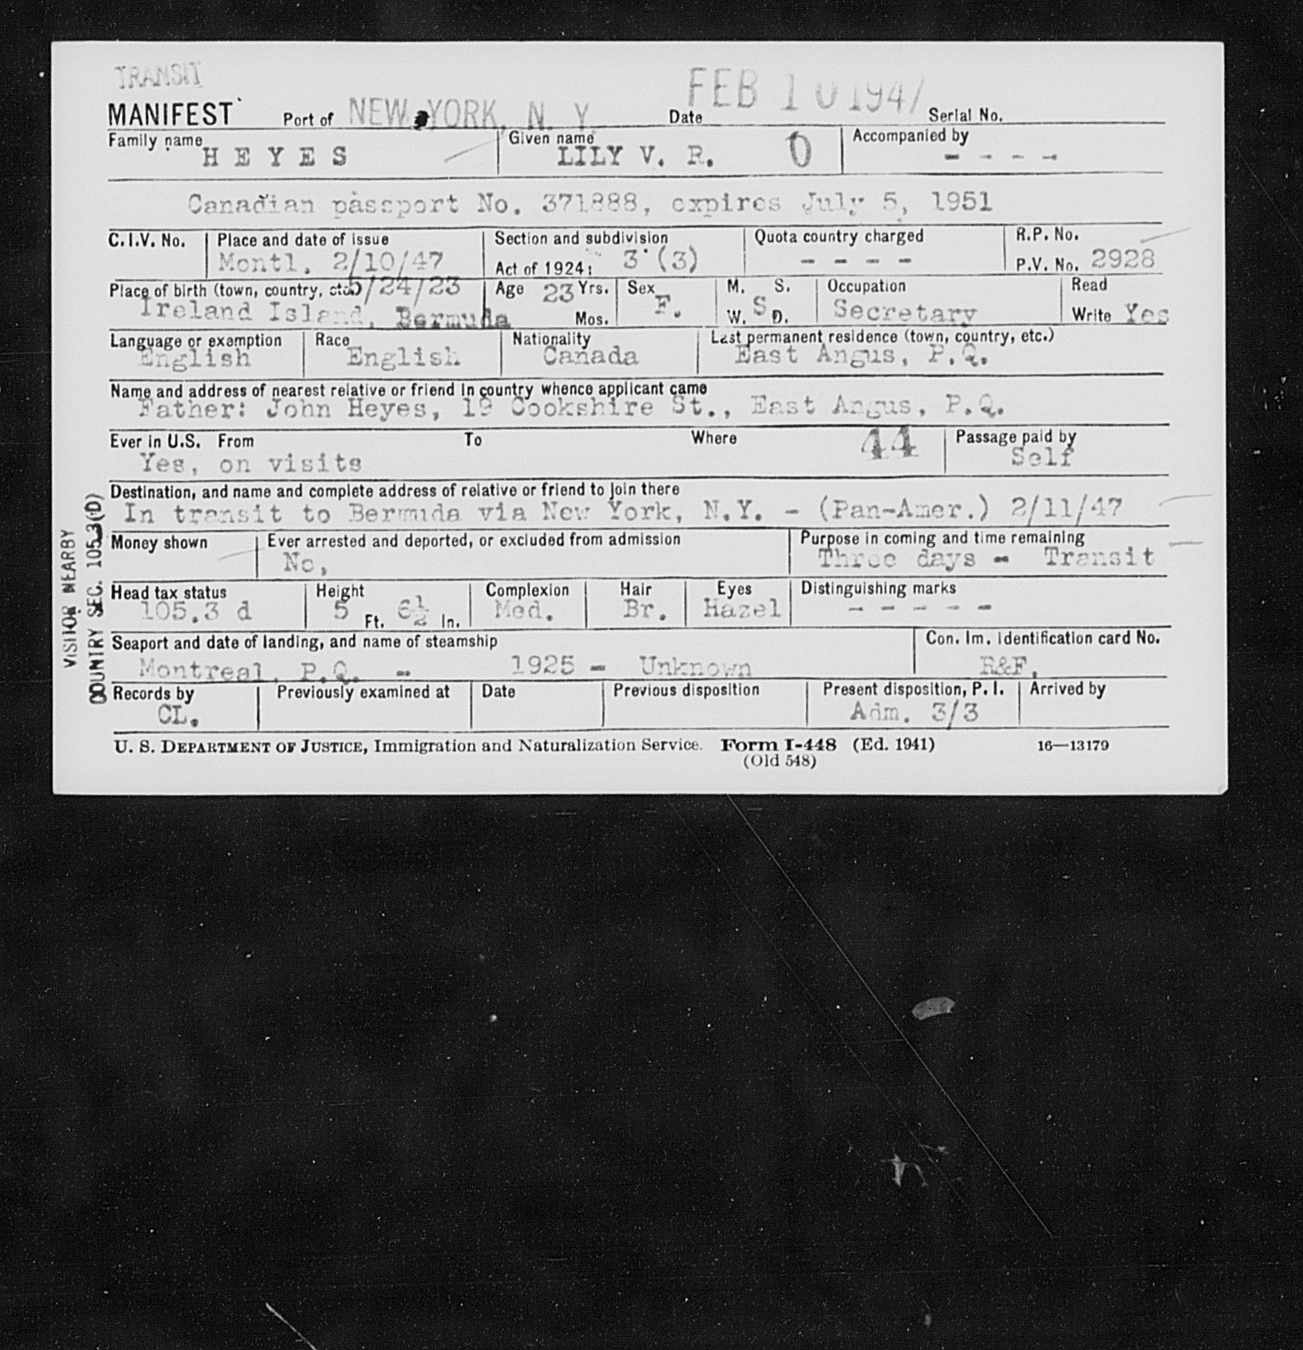 TRANSIT
MANIFEST Port of NEW YORK, N. Y Date FEB 10 1947 Serial No.
Family name HEYES Given name LILY V. R. 0 Accompanied by - - - -
Canadian passport No. 371888, expires July 5, 1951
C.I.V. No. Place and date of issue Section and subdivision Quota country charged R.P. No.
Montl. 2/10/47 Act of 1924: 3 (3) - - - - P.V. No. 2928
Place of birth (town, country, etc.) 5/24/23 Age 23 Yrs. Sex M. S. Occupation Read
Ireland Island, Bermuda Mos. F. W. S D. Secretary Write Yes
Language or exemption Race Nationality Last permanent residence (town, country, etc.)
English English Canada East Angus, P.Q.
Name and address of nearest relative or friend in country whence applicant came
Father: John Heyes, 19 Cookshire St., East Angus, P.Q.
Ever in U.S. From To Where 44 Passage paid by
Yes, on visits Self
Destination, and name and complete address of relative or friend to join there
In transit to Bermuda via New York, N.Y. - (Pan-Amer.) 2/11/47
Money shown Ever arrested and deported, or excluded from admission Purpose in coming and time remaining
No, Three days - Transit
Head tax status Height Complexion Hair Eyes Distinguishing marks
105.3 d 5 Ft. 6½ In. Med. Br. Hazel - - - - -
Seaport and date of landing, and name of steamship Con. Im. Identification card No.
Montreal, P.Q. - 1925 - Unknown R&F.
Records by Previously examined at Date Previous disposition Present disposition, P. I. Arrived by
CL. Adm. 3/3
U. S. DEPARTMENT OF JUSTICE, Immigration and Naturalization Service. Form I-448 (Ed. 1941) 16—13179
(Old 548)
VISITOR NEARBY
COUNTRY SEC. 105.3(D)